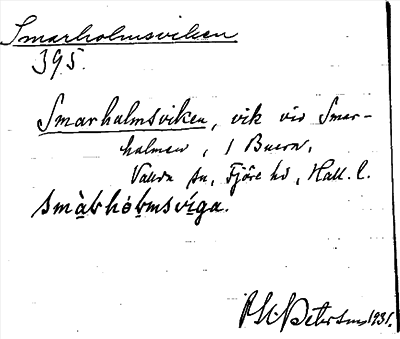 Smarholmsviken
395.
Smarholmsviken, vik vid Smar-
holmen, i Buern,
Valda sn, Fjäre hd, Hall. l.
smàrhó̱ḷmsvíga.
Petersens 1931.